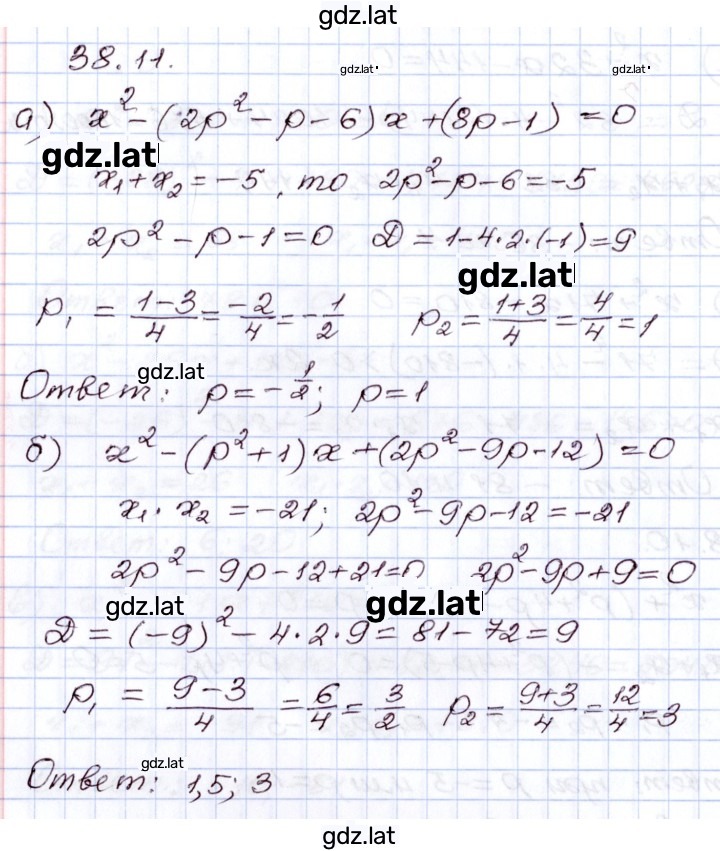 gdz.lat
38.11.
gdz.lat. gdz.lat.
а) x² - (2p² - p - 6)x + (8p - 1) = 0
gdz.lat
x₁ + x₂ = -5, то 2p² - p - 6 = -5
2p² - p - 1 = 0 D = 1 - 4·2·(-1) = 9
gdz.lat
p₁ = (1-3)/4 = -2/4 = -1/2 p₂ = (1+3)/4 = 4/4 = 1
gdz.lat
Ответ: p = -1/2; p = 1
б) x² - (p² + 1)x + (2p² - 9p - 12) = 0
x₁ · x₂ = -21; 2p² - 9p - 12 = -21
2p² - 9p - 12 + 21 = 0 2p² - 9p + 9 = 0
gdz.lat gdz.lat
D = (-9)² - 4·2·9 = 81 - 72 = 9
p₁ = (9-3)/4 = 6/4 = 3/2 p₂ = (9+3)/4 = 12/4 = 3
gdz.lat
Ответ: 1,5; 3
gdz.lat